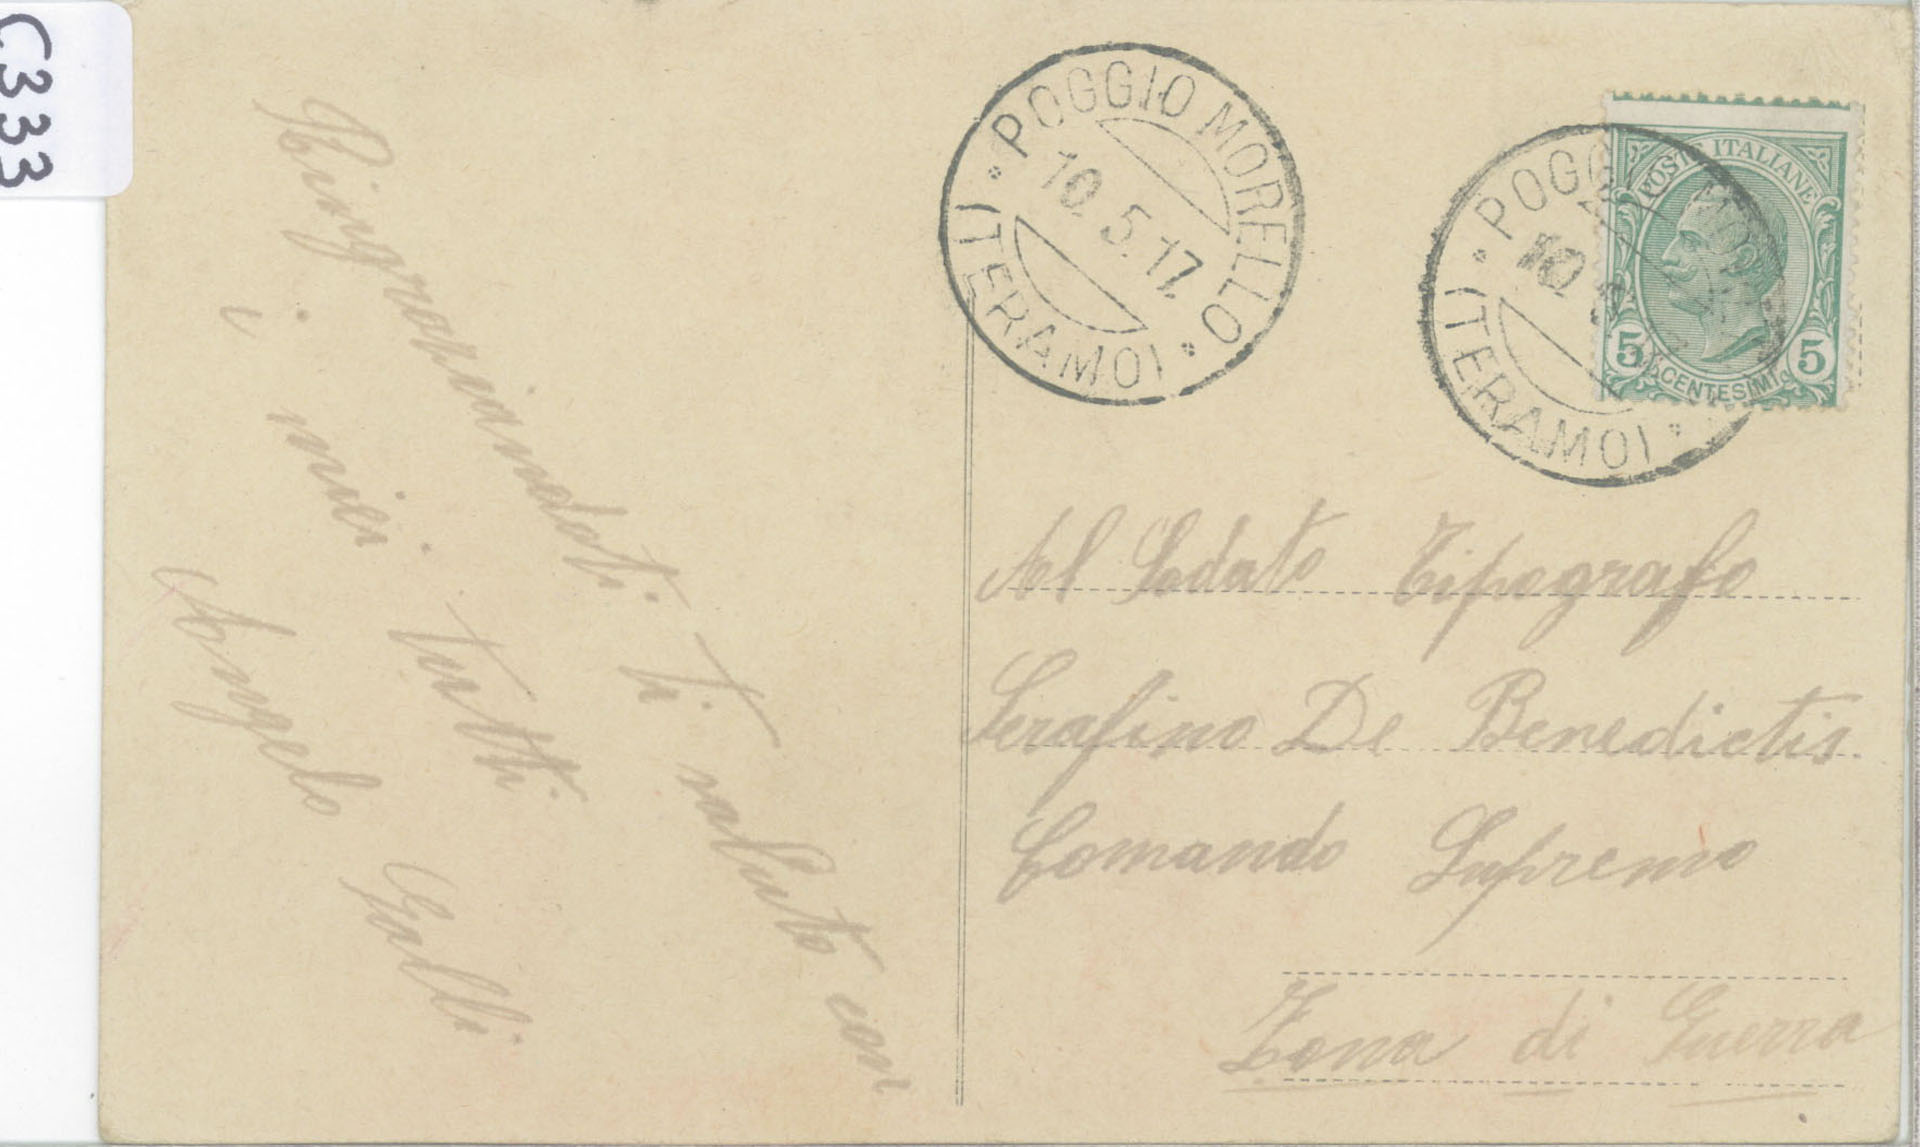 C333
Ringraziandoti ti saluto con
i miei tutti
Angelo Galli
POGGIO MORELLO
10.5.17.
(TERAMO)
POGGIO MORELLO
10.5
(TERAMO)
POSTE ITALIANE
5 CENTESIMI 5
Al Soldato Tipografo
Serafino De Benedictis
Comando Supremo
Zona di Guerra